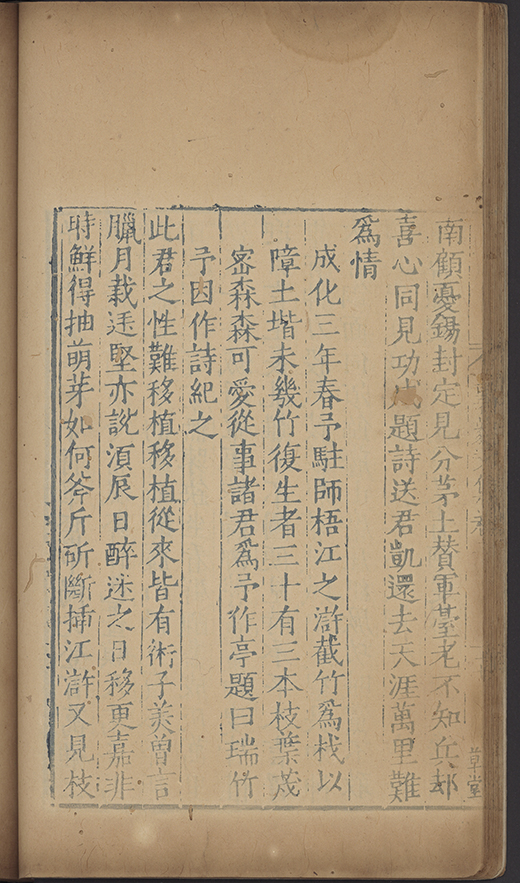 草堂
南顧憂錫封定見分茅土賛軍臺老不知兵却
喜心同見功成題詩送君凱還去天涯萬里難
爲情
成化三年春予駐師梧江之滸截竹爲栈以
障土堦未幾竹復生者三十有三本枝葉茂
密森森可愛從事諸君爲予作亭題曰瑞竹
予因作詩紀之
此君之性難移植移植從來皆有術子美曾言
臘月栽廷堅亦說湏辰日醉迷之日移更嘉非
時鮮得抽萌芽如何斧斤斫斷揷江滸又見枝